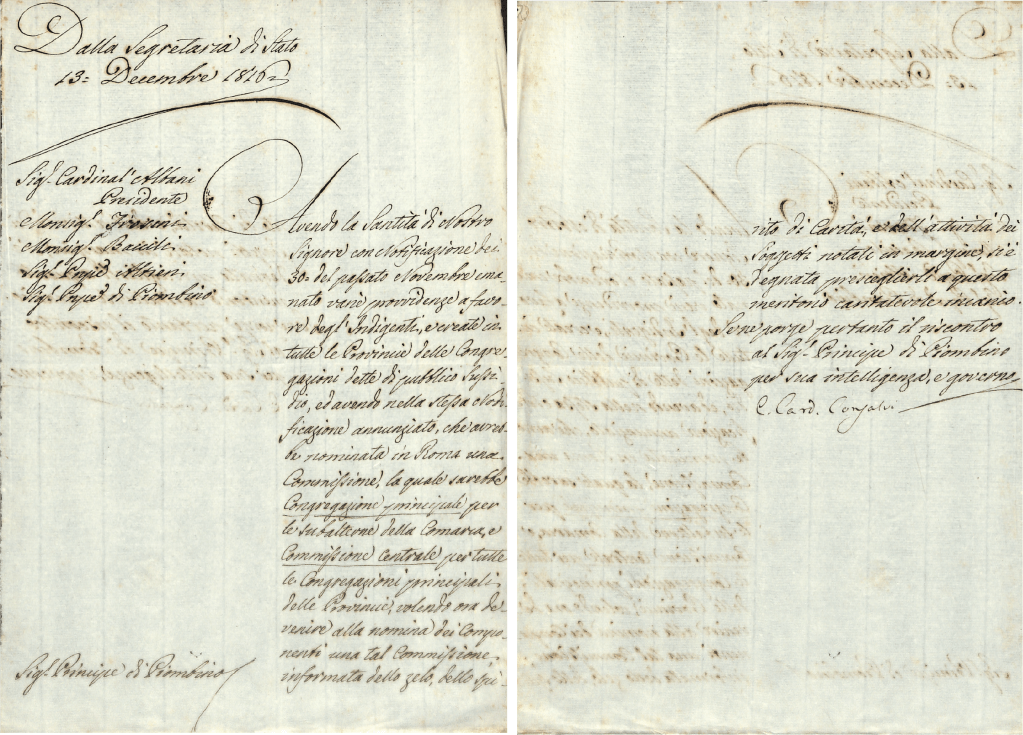 Dalla Segretaria di Stato
13= Decembre 1816=
Sig.r Cardinal' Albani
Presidente
Monsig.r
Monsig.r
Sig.r Pnpe Altieri
Sig.r Pnpe di Piombino
Avendo la Santità di Nostro
Signore con Notificazione dei
30= del passato Novembre ema-
nato varie provvidenze a favo-
re degl'Indigenti, e create in
tutte le Provincie delle Congre-
gazioni dette di pubblico Sussi-
dio, ed avendo nella stessa Noti-
ficazione annunziato, che avreb-
be nominata in Roma una
Commissione, la quale sarebbe
Congregazione principale per
le subalterne della Comarca, e
Commissione Centrale per tutte
le Congregazioni principali
delle Provincie, volendo ora de-
venire alla nomina dei Compo-
nenti una tal Commissione,
informata dello zelo, dello spi-
Sig.r Principe di Piombino
rito di Carità, e dell'attività dei
Soggetti notati in margine, si è
degnata prescegliersi a questo
meritorio caritatevole incarico.
Se ne porge pertanto il riscontro
al Sig.r Principe di Piombino
per sua intelligenza, e governo
E. Card. Consalvi